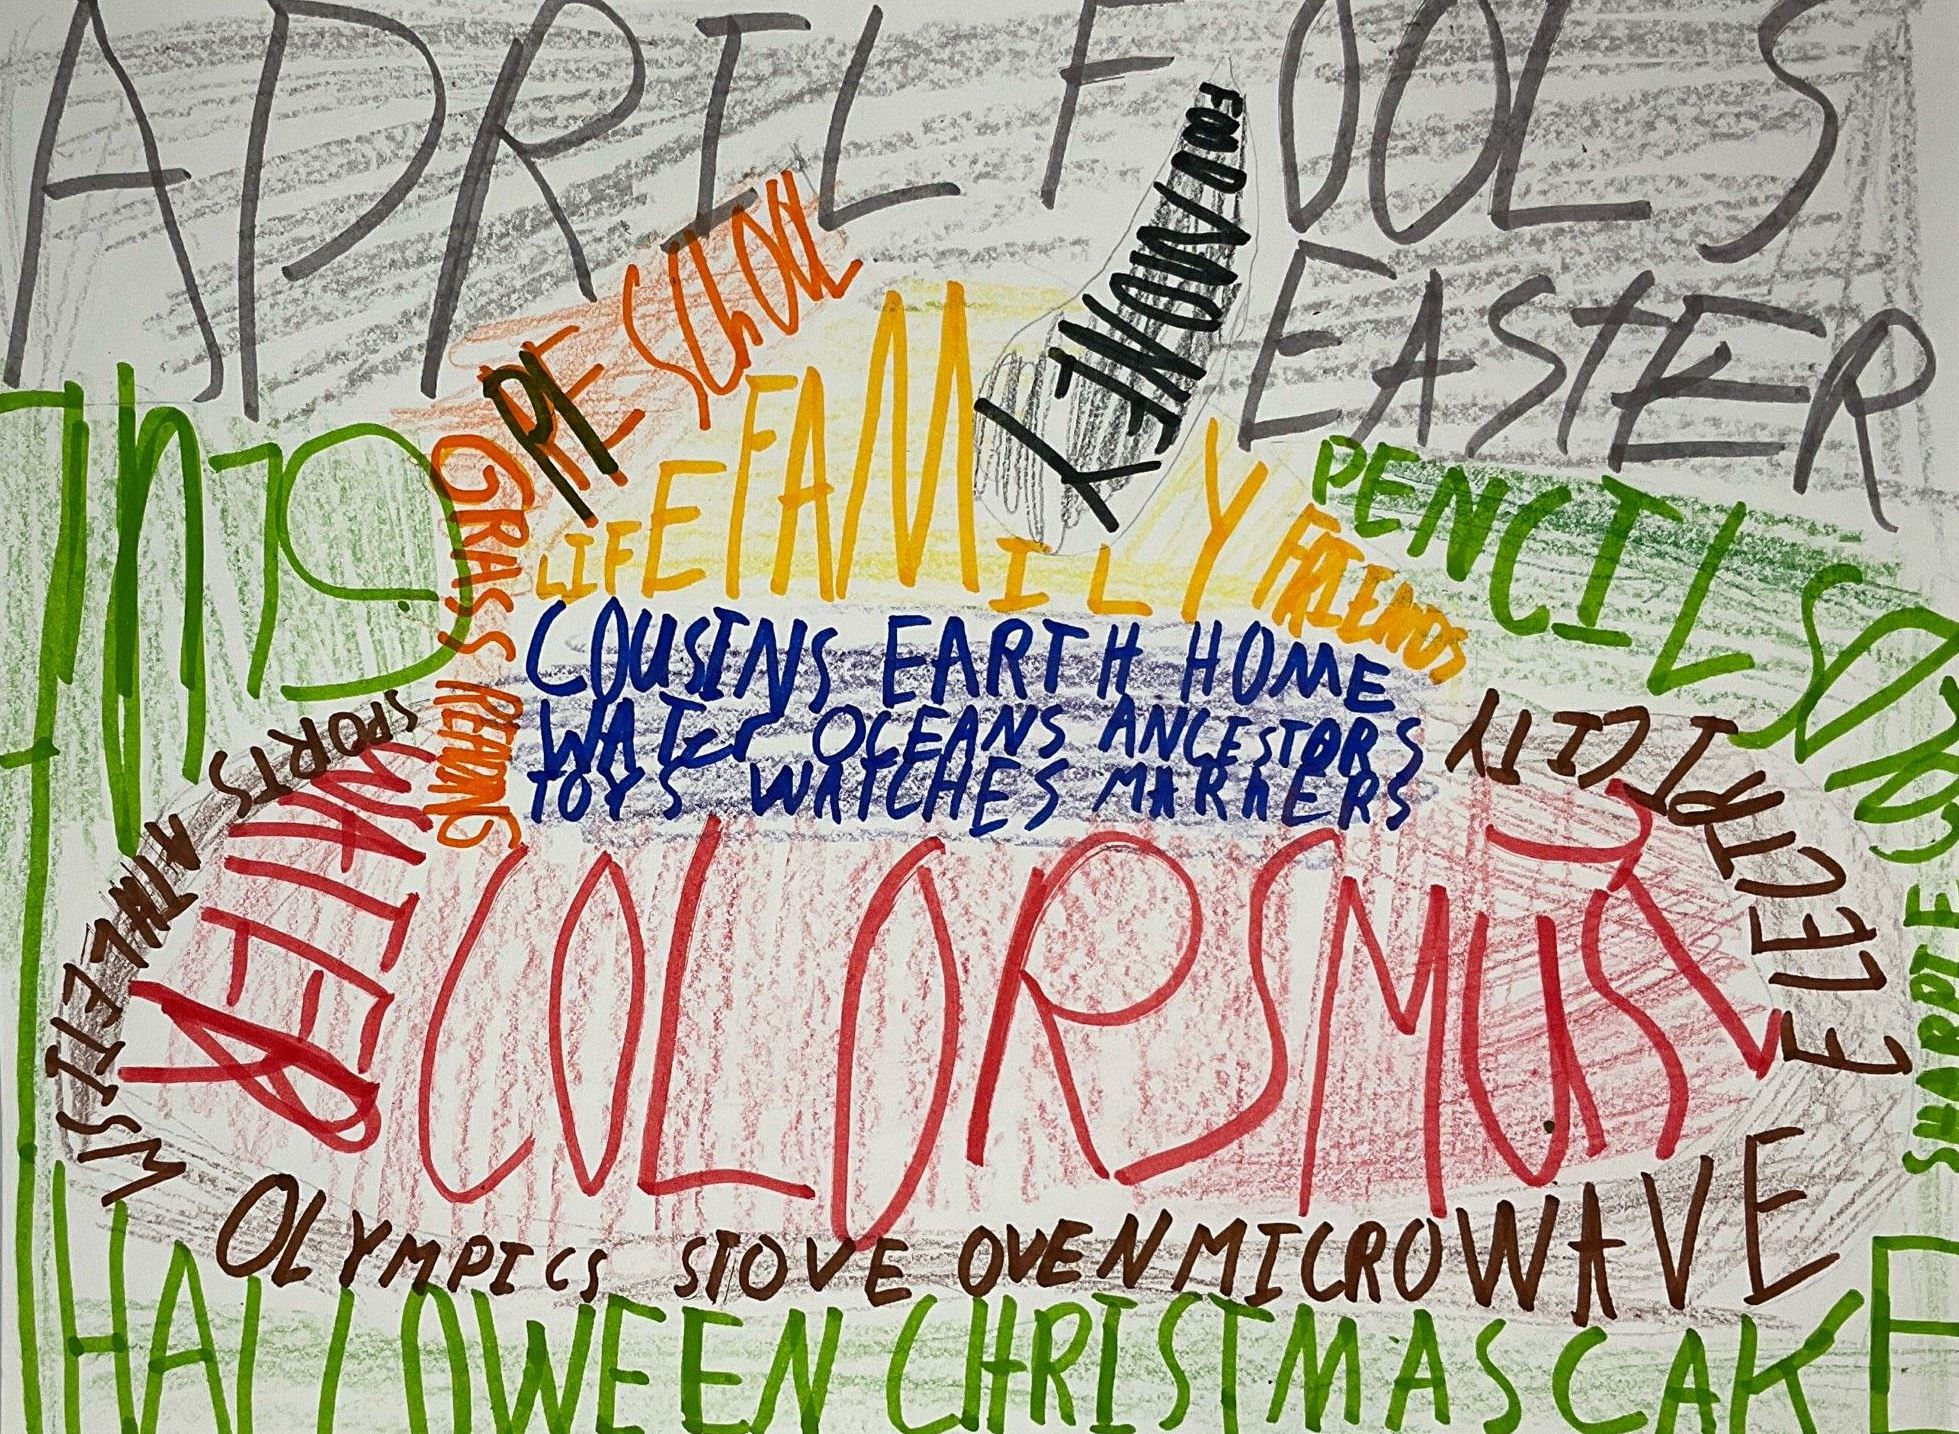 APRIL FOOLS
EASTER
FOOD MONEY
PRE SCHOOL
GRASS READING
LIFE FAMILY FRIENDS
PENCILS
COUSINS EARTH HOME
WATER OCEANS ANCESTORS
TOYS WATCHES MARKERS
SPORTS
ATHLETISM
WATER COLORS MUSIC
ELECTRICITY
SHARPIE
OLYMPICS STOVE OVEN MICROWAVE
HALLOWEEN CHRISTMAS CAKE